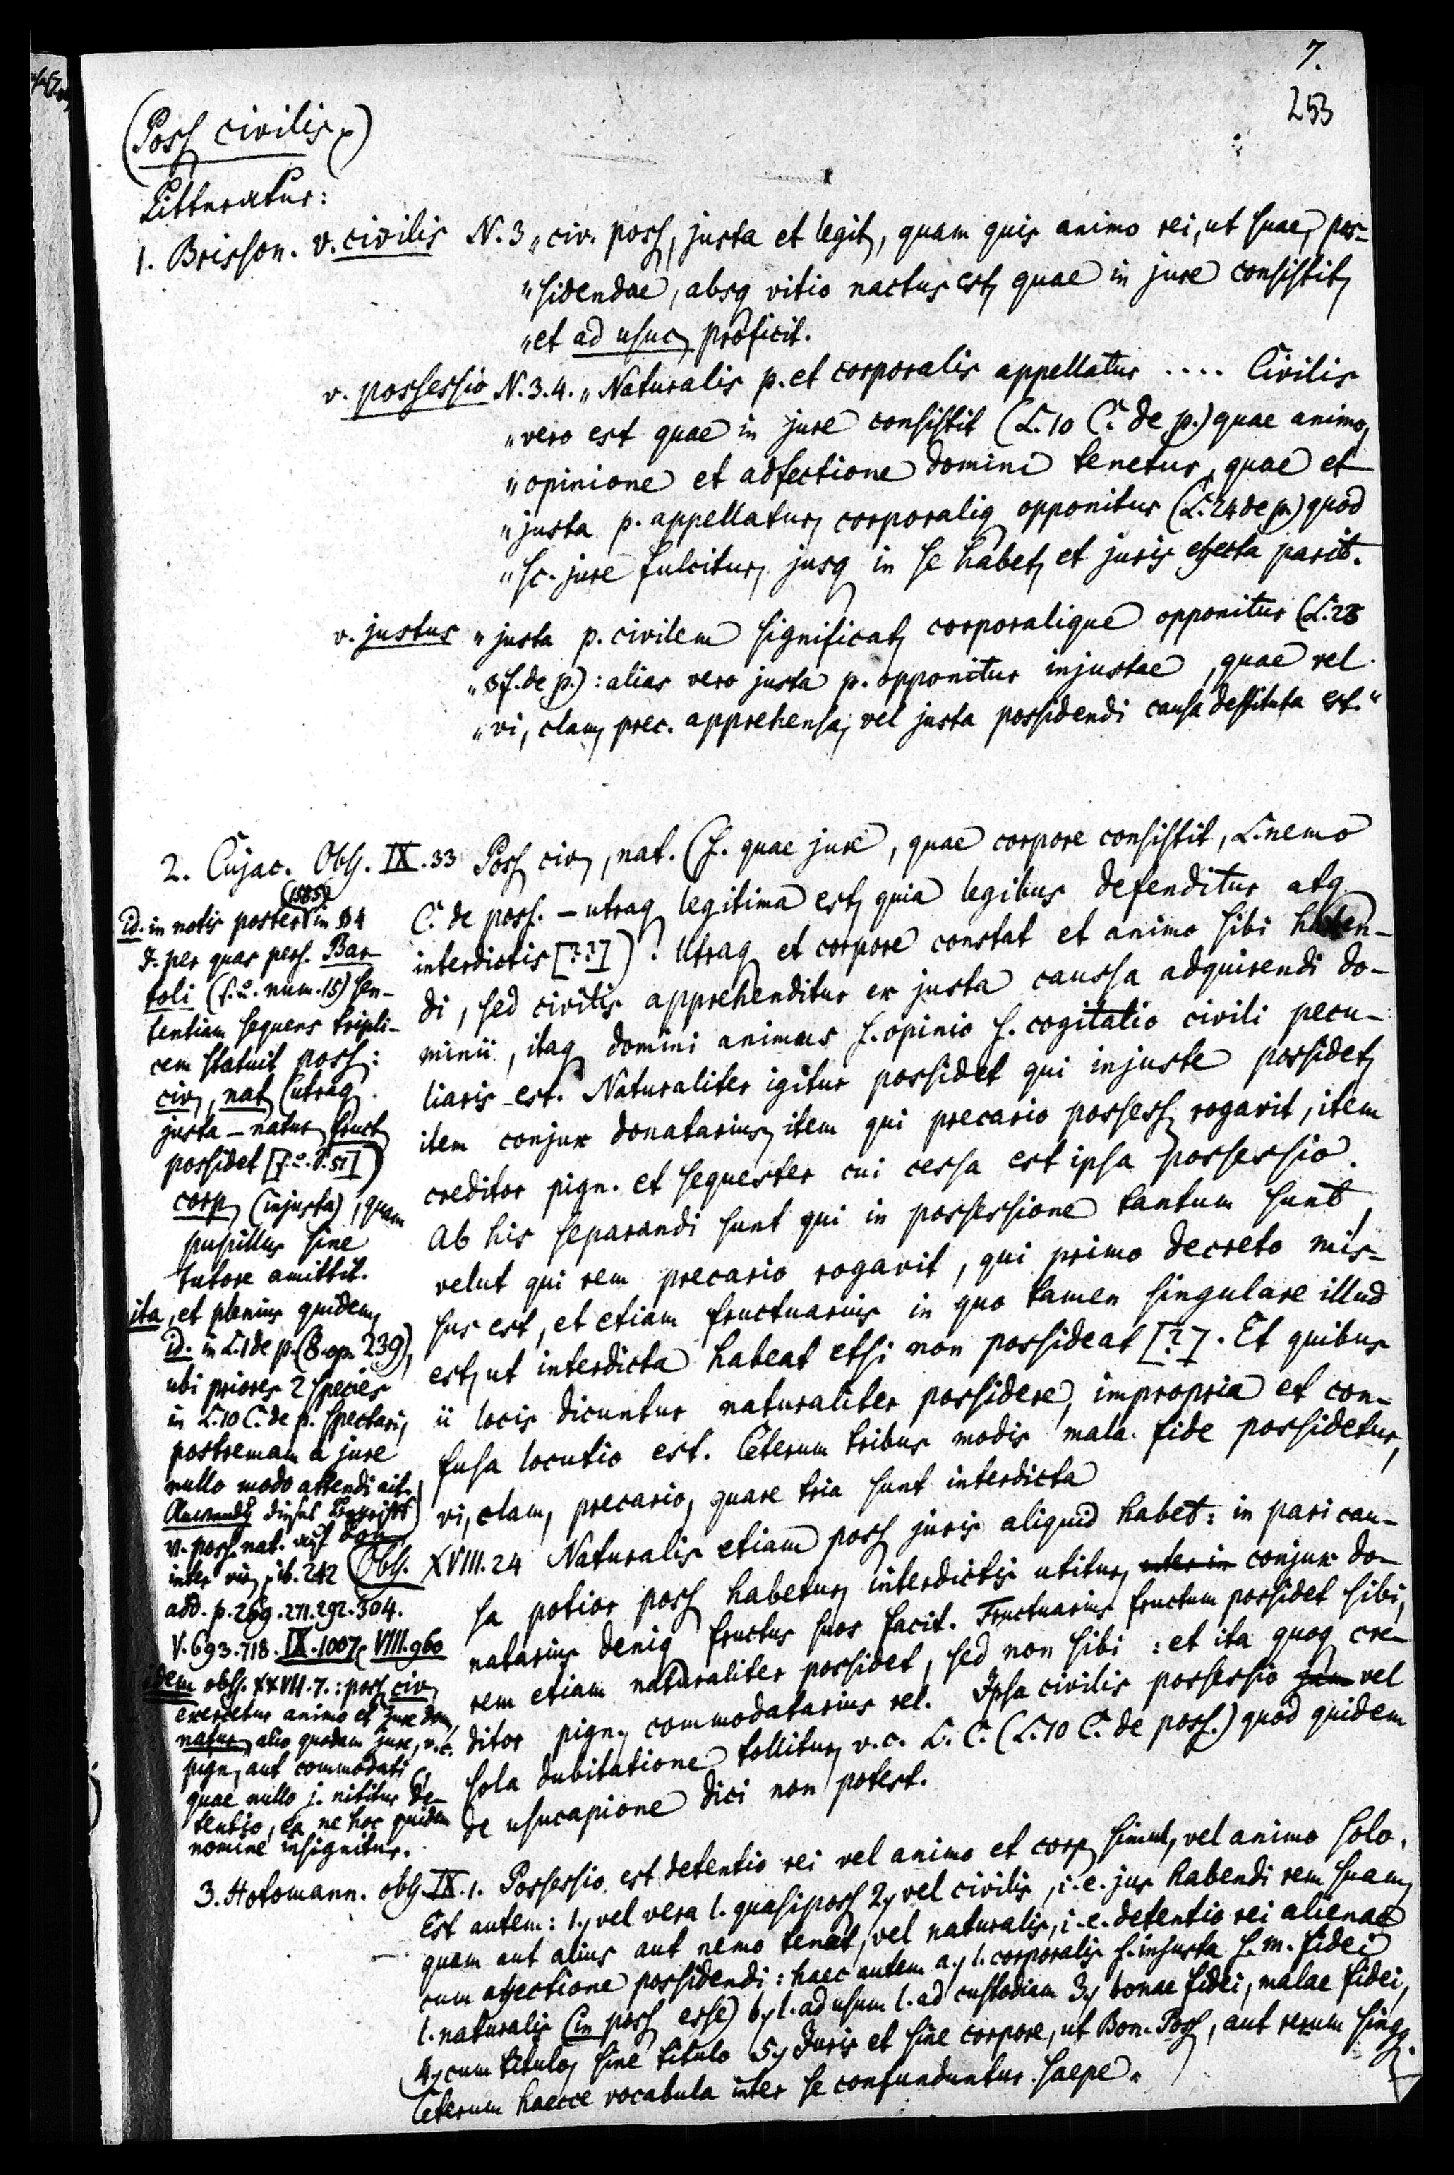 7.
253
(Poss civilis)
Litteratur:
1. Brisson. v. civilis N. 3 „civ. poss, justa et legit, quam quis animo rei, ut suae, pos-
„sidendae, absq vitio nactus est, quae in jure consistit,
„et ad usuc, proficit.
v. possessio N. 3. 4. „Naturalis p. et corporalis appellatur .... Civilis
„vero est quae in jure consistit (L. 10 C. de p.) quae animo,
„opinione et adfectione domini tenetur, quae et
„justa p. appellatur, corporaliq opponitur (L. 24 de p.) quod
„sc. jure fulcitur, jusq in se habet, et juris effecta parit.
v. justus „justa p. civilem significat, corporalique opponitur (L. 28
„de p.): alias vero justa p. opponitur injustae, quae vel
„vi, clam, prec. apprehensa, vel justa possidendi causa destituta est."
2. Cujac. Obs. IX. 33 Poss civ, nat. (s. quae jure, quae corpore consistit, L. nemo
C. de poss. – utraq legitima est, quia legibus defenditur atq
interdictis [??]). Utraq et corpore constat et animo sibi haben-
di, sed civilis apprehenditur ex justa caussa adquirendi do-
minii, itaq domini animus s. opinio s. cogitatio civili pecu-
liaris est. Naturaliter igitur possidet qui injuste possidet,
item conjux donatarius, item qui precario possess rogavit, item
creditor pign. et sequester cui cessa est ipsa possessio.
Ab his separandi sunt qui in possessione tantum sunt,
velut qui rem precario rogavit, qui primo decreto mis-
sus est, et etiam fructuarius in quo tamen singulare illud
est, ut interdicta habeat etsi non possideat [?]. Et quibus
ii locis dicuntur naturaliter possidere, impropria et con-
fusa locutio est. Ceterum tribus modis mala fide possidetur,
vi, clam, precario, quare tria sunt interdicta
Obs. XVIII. 24 Naturalis etiam poss juris aliquid habet: in pari cau-
sa potior poss habetur, interdictis utitur, conjux do-
natarius deniq fructus suos facit. Fructuarius fructum possidet sibi,
rem etiam naturaliter possidet, sed non sibi: et ita quoq cre-
ditor pign. commodatarius rel. Ipsa civilis possessio vel
sola dubitatione tollitur, v. c. L. C. (L. 10 C. de poss.) quod quidem
de usucapione dici non potest.
id. in notis poster (1585) in §4
I. per quas pers. Bar-
toli (num. 15) sen-
tentiam sequens tripli-
cem statuit poss:
civ, nat (utraq
justa – natur, fruct
possidet)
corp (injusta), quam
pupillus sine
tutore amittit.
ita, et plenius quidem,
id. in L. 1 de p. (8. op. 239),
ubi priores 2 species
in L. 10 C. de p. spectari,
postremam a jure
nullo modo attendi ait.
v. poss. nat. auf don
inter vir, ib. 242
add. p. 269. 271. 292. 304.
V. 693. 718. IX. 1007. VIII. 960
idem obs. XXVII. 7.: poss civ
exercetur animo et jure dom,
natur, alio quodam jure, v. c.
pign, aut commodati,
quae nullo j. nititur de-
tentio, ea ne hoc quidem
nomine insignitur.
3. Hotomann. obs. IX. 1. Possessio est detentio rei vel animo et corp simul, vel animo solo.
Est autem: 1, vel vera l. quasiposs 2, vel civilis, i. e. jus habendi rem suam,
quam aut alius aut nemo tenet, vel naturalis, i. e. detentio rei alienae
cum affectione possidendi: haec autem a, l. corporalis s. injusta s. m. fidei
l. naturalis (in poss esse) b, l. ad usum l. ad custodiam 3, bonae fidei, malae fidei,
4, cum titulo, sine titulo 5, Juris et sine corpore, ut Bon. Poss, aut rerum singg.
Ceterum haecce vocabula inter se confunduntur saepe.